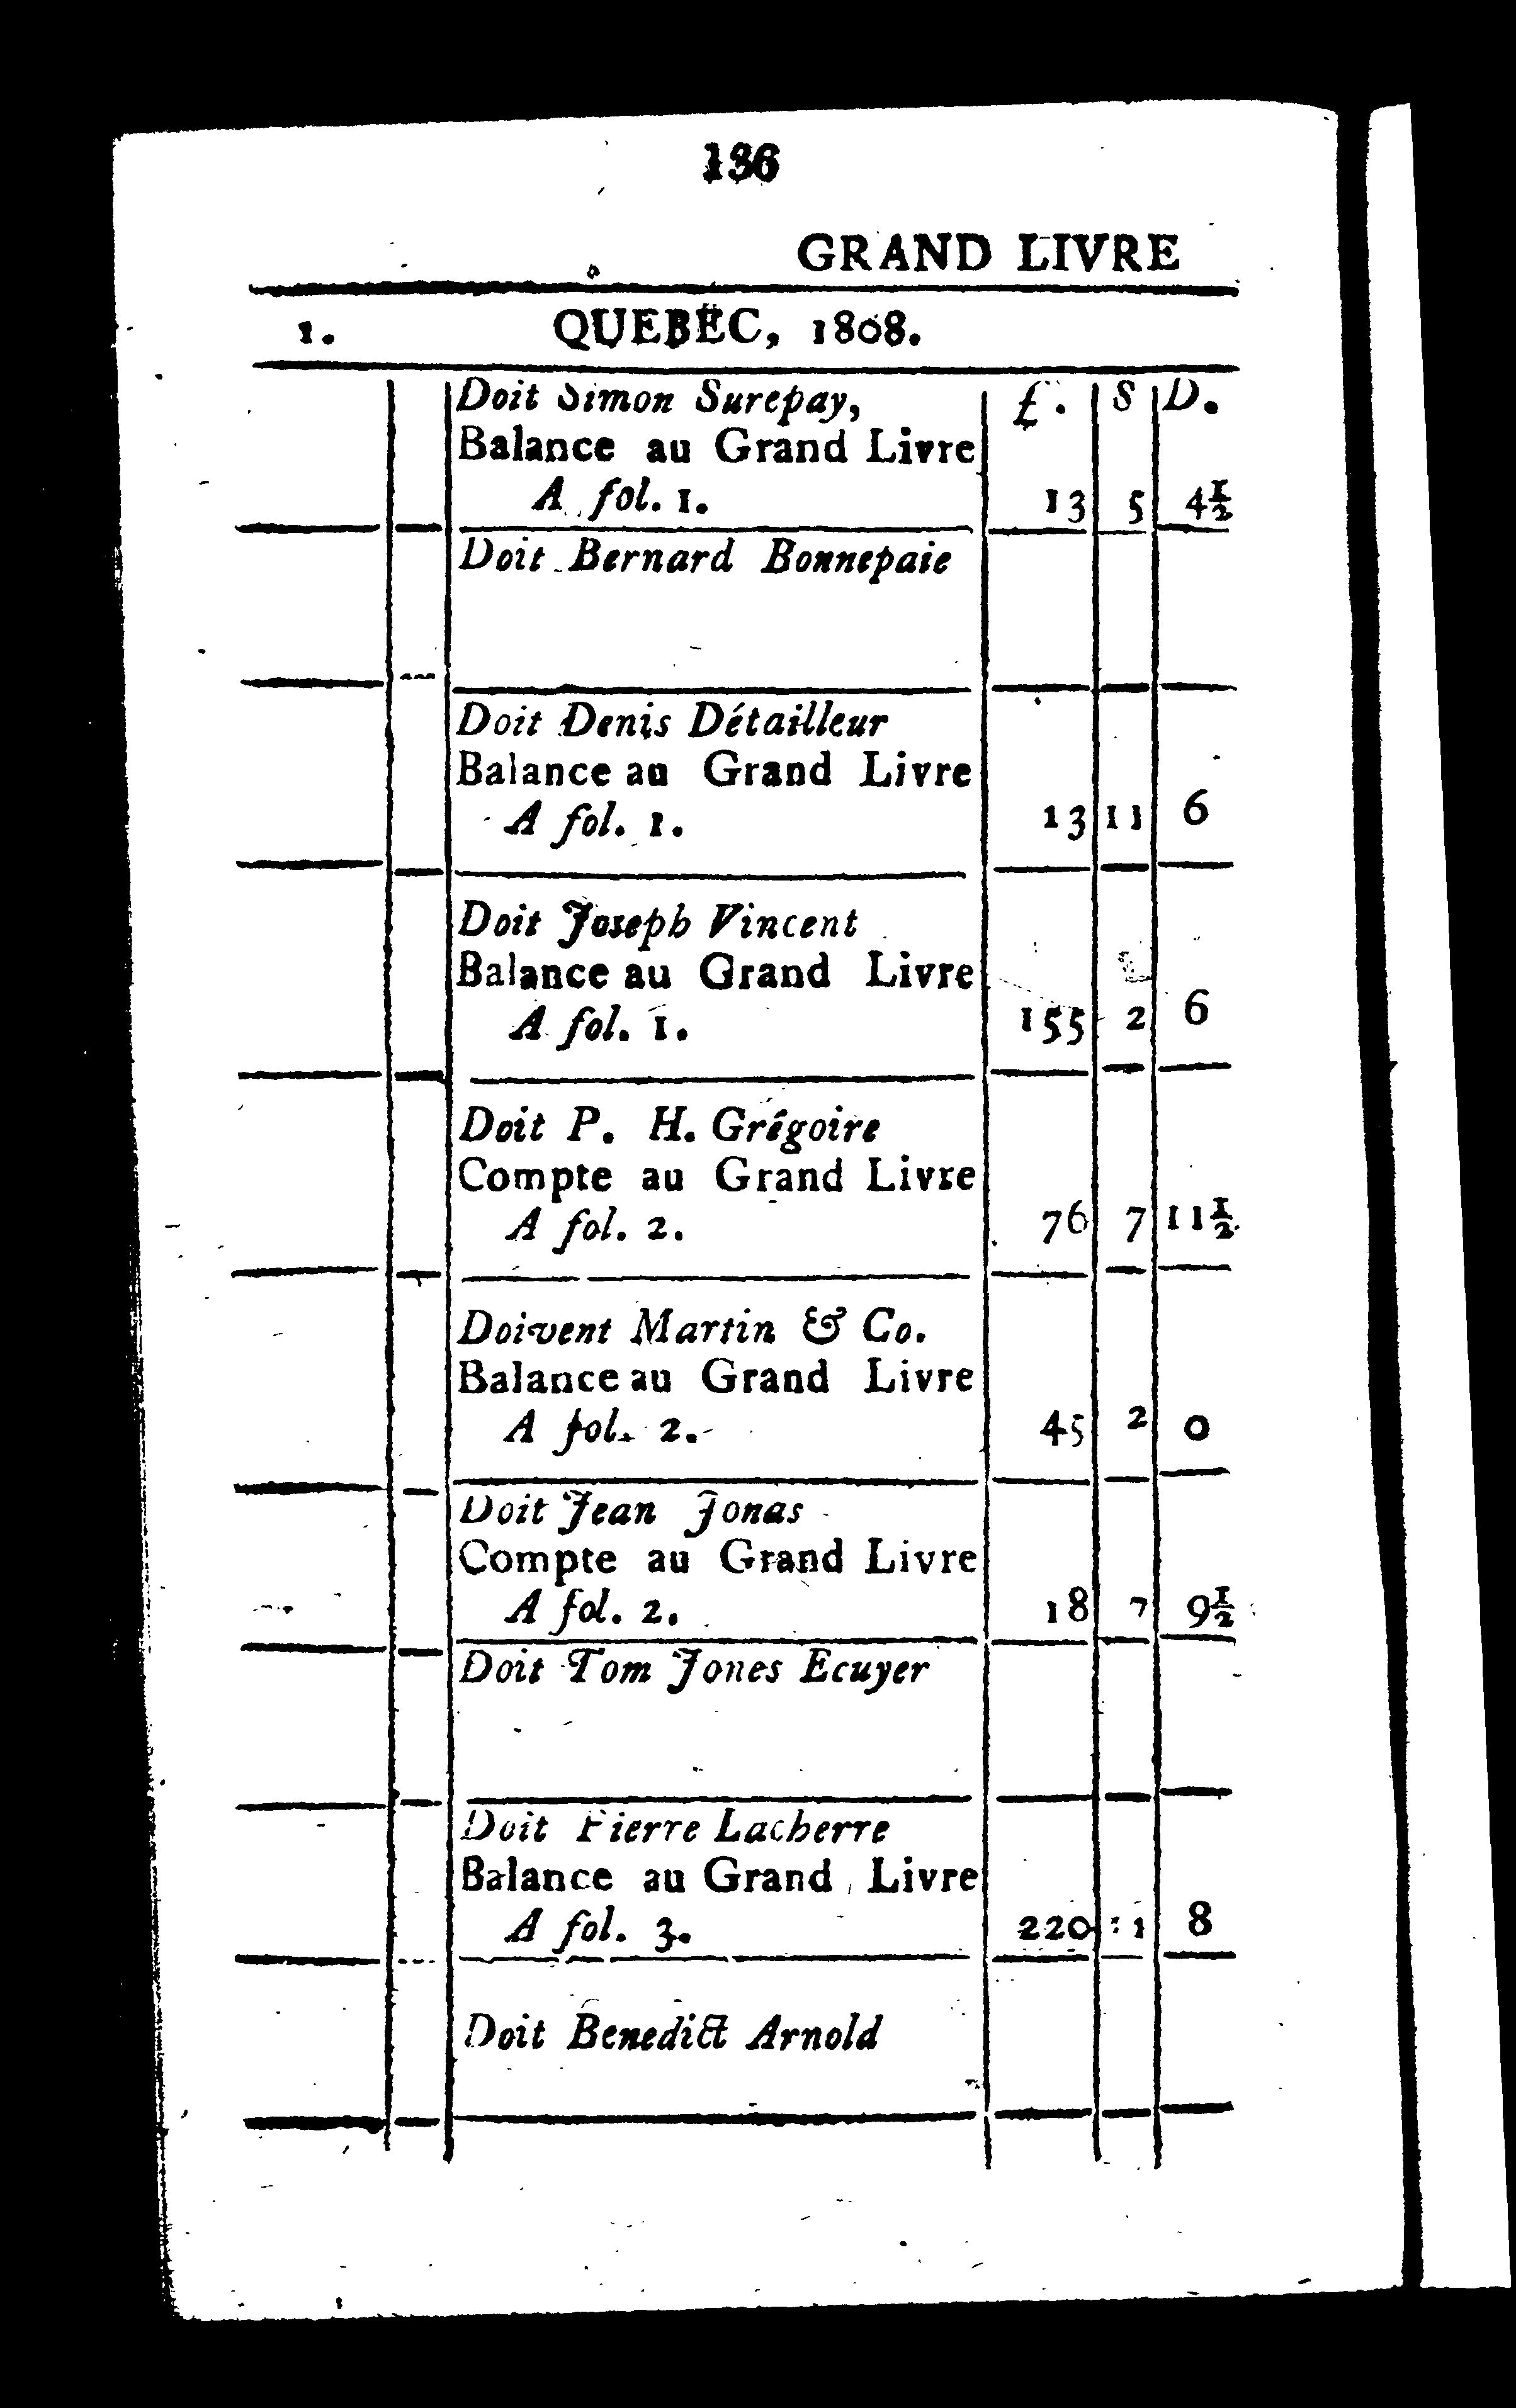 136
GRAND LIVRE
1. QUEBEC, 1808.
Doit Simon Surepay, £. S D.
Balance au Grand Livre
A fol. 1. 13 5 4½
Doit Bernard Bonnepaie
Doit Denis Détailleur
Balance au Grand Livre
A fol. 1. 13 11 6
Doit Joseph Vincent
Balance au Grand Livre
A fol. 1. 155 2 6
Doit P. H. Grégoire
Compte au Grand Livre
A fol. 2. 76 7 11½
Doivent Martin & Co.
Balance au Grand Livre
A fol. 2. 45 2 0
Doit Jean Jonas
Compte au Grand Livre
A fol. 2. 18 7 9½
Doit Tom Jones Ecuyer
Doit Pierre Lacherre
Balance au Grand Livre
A fol. 3. 220 8
Doit Benedict Arnold